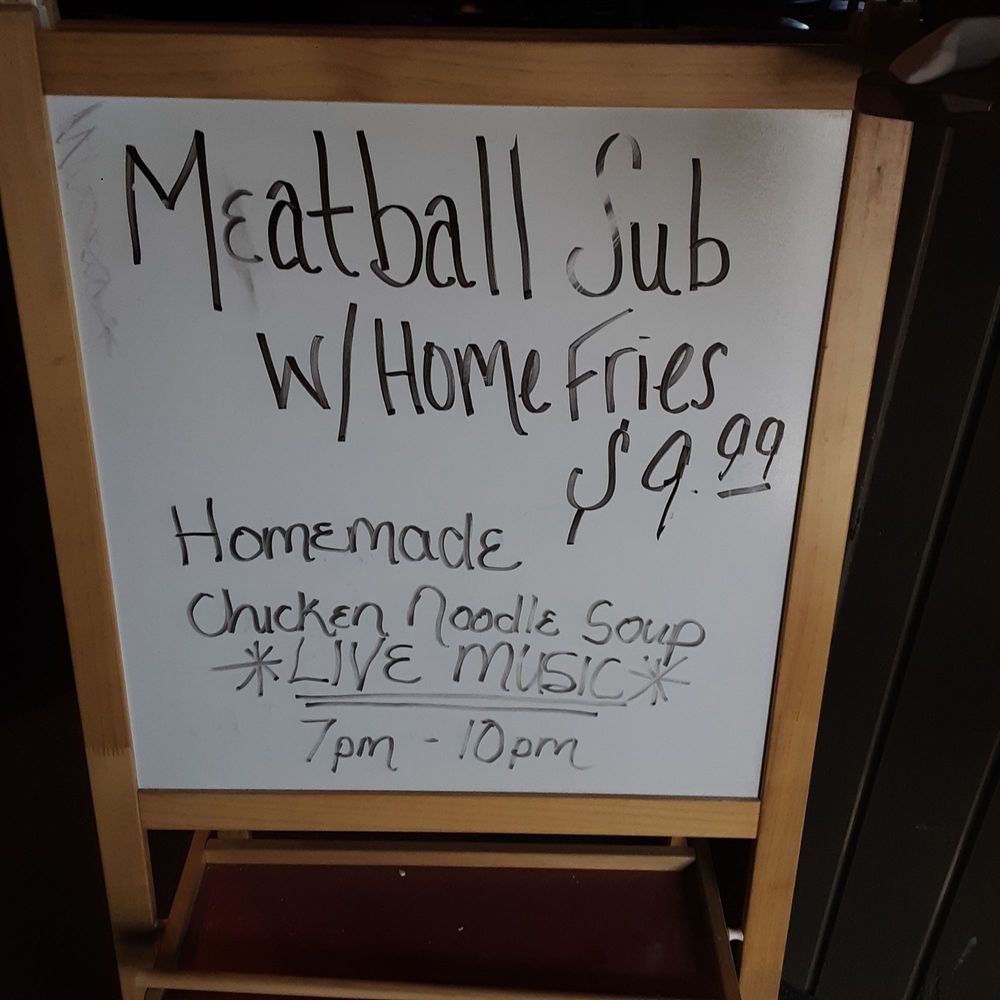 Meatball Sub
W/Home Fries
$9.99
Homemade
Chicken Noodle Soup
*LIVE MUSIC*
7pm - 10pm